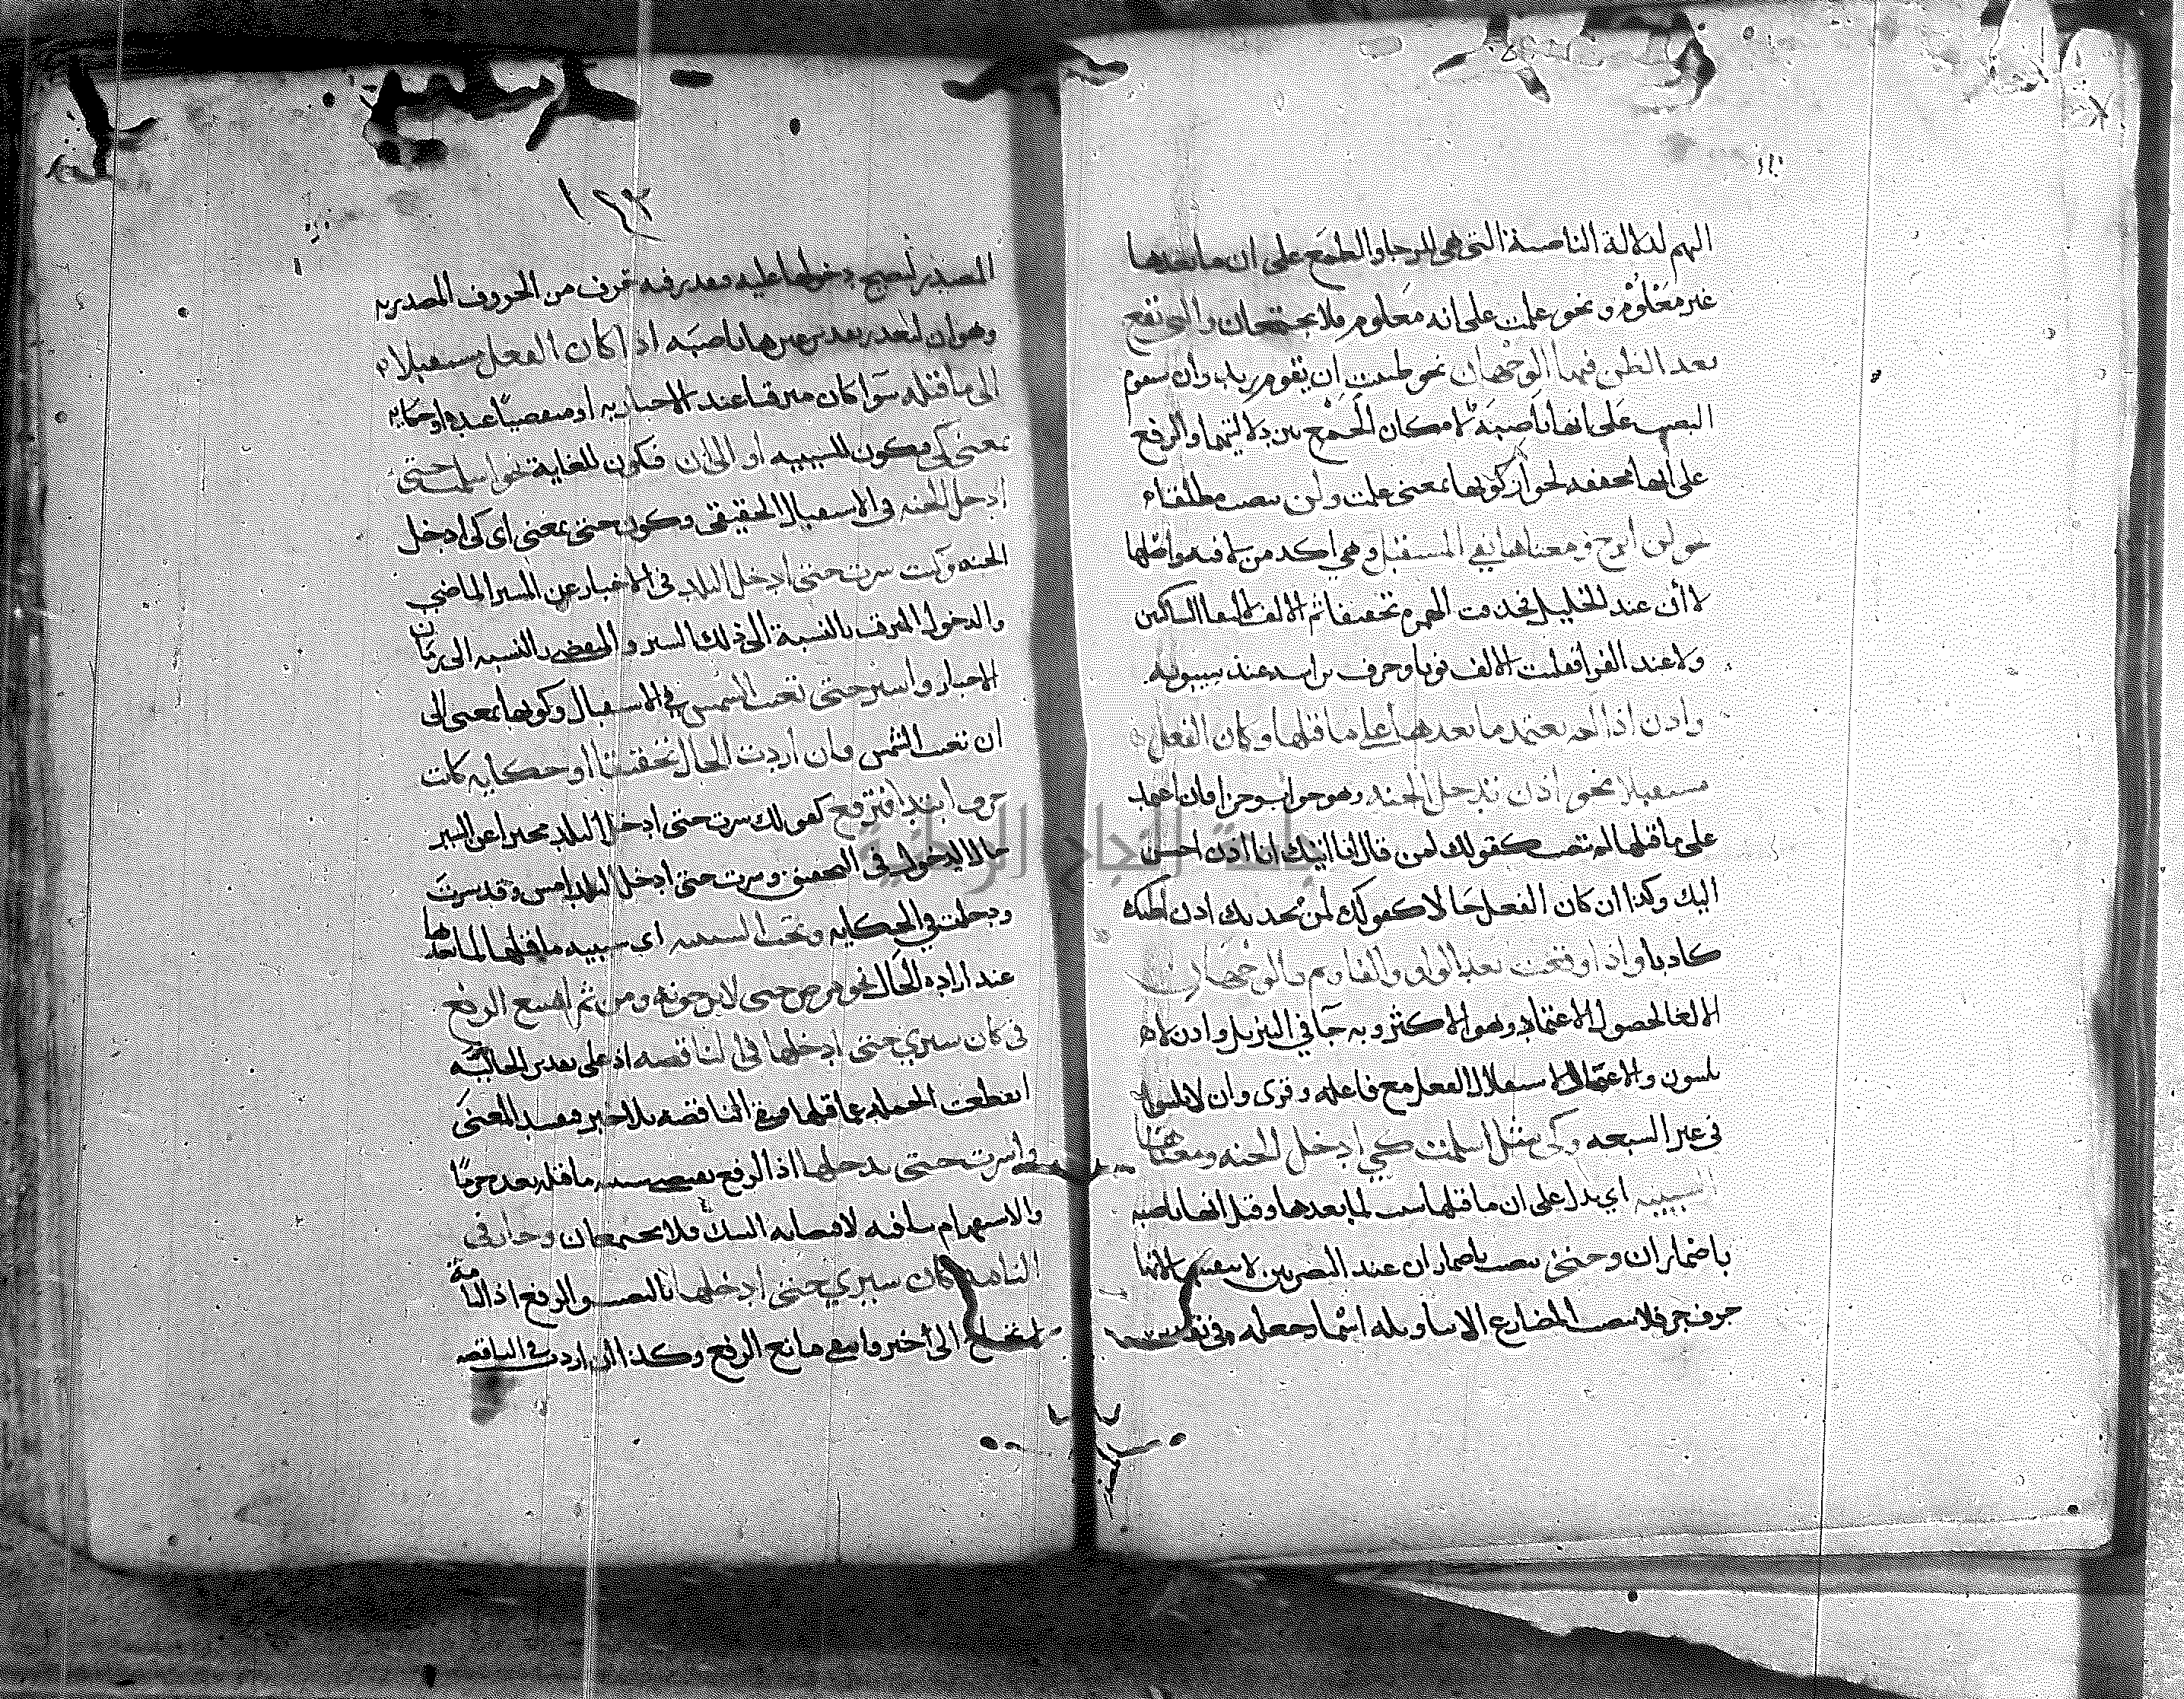 لدلالة الناصبة التي هي للرجا والطمع على ان ما بعدها
غير معلوم ونحو علمت على انه معلوم فلا يجتمعان والتي تقع
بعد الظن فيها الوجهان نحو ظننت ان يقوم زيد وان سيقوم
النصب على انها ناصبة لامكان الجمع بين دلالتيهما والرفع
على انها مخففة لجواز كونها بمعنى علمت ولن تنصب مطلقا
نحو لن ابرح ومعناها نفي المستقبل وهي اكد من لا فيه واصلها
لا أن عند الخليل فحذفت الهمزة تخفيفا ثم الالف لالتقا الساكنين
ولا عند الفرا قلبت الالف نونا وحرف براسه عند سيبويه
واذن اذا لم يعتمد ما بعدها على ما قبلها وكان الفعل
مستقبلا نحو اذن تدخل الجنة وهو جواب وجزا فان اعتمد
على ما قبلها لم تنصب كقولك لمن قال انا اتيك انا اذن احسن
اليك وكذا ان كان الفعل حالا كقولك لمن يحدثك اذن اظنك
كاذبا واذا وقعت بعد الواو والفا فالوجهان
الالغا لحصول الاعتماد وهو الاكثر وبه جا في التنزيل واذن لا
يلبثون والاعمال لاستقلال الفعل مع فاعله وقرى وان لا يلبثوا
في غير السبعة وكي مثل اسلمت كي ادخل الجنة ومعناها
السببية اي يدل على ان ما قبلها سبب لما بعدها وقيل انها ناصبة
باضمار ان وحتى تنصب باضمار ان عند البصريين لا بنفسها لانها
حرف جر فلا تنصب المضارع الا بتاويله اسما وجعله في تقدير
١٢٣
المصدر ليصح دخولها عليه ويقدر فيه حرف من الحروف المصدرية
وهو ان لتعذر تقدير غيرها ناصبة اذا كان الفعل مستقبلا
الى ما قبله سوا كان مترقبا عند الاخبار به او منقضيا عنده او حكاية
بمعنى كي وتكون للسببية او الى ان فتكون للغاية نحو اسلمت حتى
ادخل الجنة في الاستقبال الحقيقي وكون حتى بمعنى اي كي ادخل
الجنة وكنت سرت حتى ادخل البلد في الاخبار عن السير الماضي
والدخول المترقب بالنسبة الى ذلك السير والمنقضي بالنسبة الى زمان
الاخبار واسير حتى تغيب الشمس في الاستقبال وكونها بمعنى الى
ان تغيب الشمس فان اردت الحال تحقيقا او حكاية كانت
حرف ابتدا فترفع كقولك سرت حتى ادخل البلد مخبرا عن السير
حالا لدخول في التحقيق وسرت حتى ادخل البلد امس وقد سرت
ودخلت في الحكاية وتجب السببية اي سببية ما قبلها لما بعدها
عند ارادة الحال نحو مرض حتى لا يرجونه ومن ثم امتنع الرفع
في كان سيري حتى ادخلها في الناقصة اذ على تقدير الحالية
انقطعت الجملة عما قبلها فتبقى الناقصة بلا خبر فيفسد المعنى
واسرت حتى تدخلها اذ الرفع يقتضي سببية ما قبله بعد جزما
والاستفهام ينافيه لاقتضائه الشك فلا يجتمعان وجاز في
التامة كان سيري حتى ادخلها بالنصب والرفع اذ التامة
الى خبر فانتفى مانع الرفع وكذا ان اردت في الناقصة
جامعة النجاح الوطنية